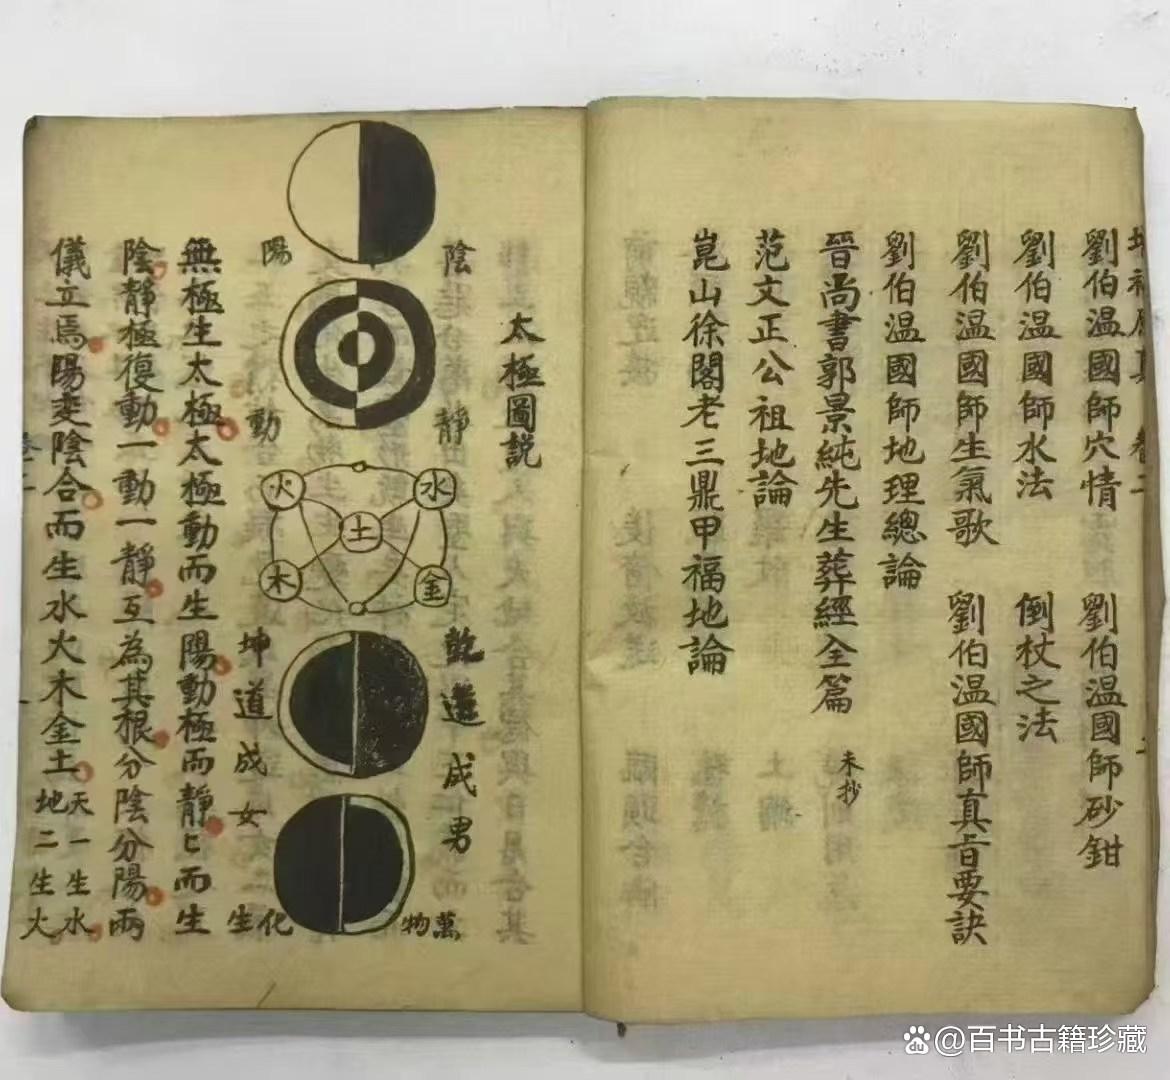 劉伯溫國師穴情　劉伯溫國師砂鉗
劉伯溫國師水法　倒杖之法
劉伯溫國師生氣歌　劉伯溫國師真旨要訣
劉伯溫國師地理總論
晉尚書郭景純先生葬經全篇 未抄
范文正公祖地論
崑山徐閣老三鼎甲福地論
太極圖説
陰 靜
陽 動
火 水
土
木 金
乾道成男
坤道成女
萬物化生
無極生太極太極動而生陽動極而靜匕而生
陰靜極復動一動一靜互為其根分陰分陽兩
儀立焉陽変陰合而生水火木金土 天一生水
地二生火
卷二
@百书古籍珍藏